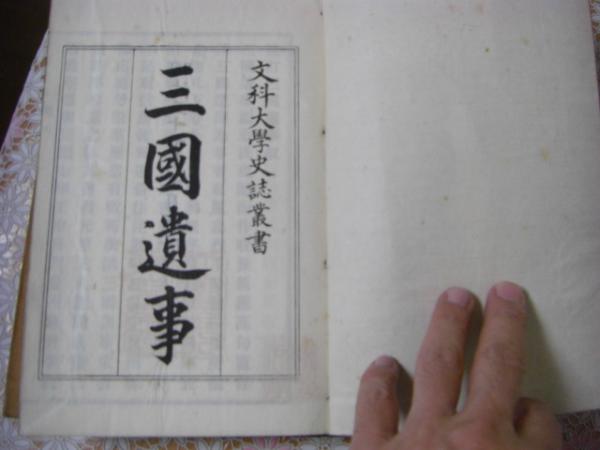 文科大學史誌叢書
三國遺事